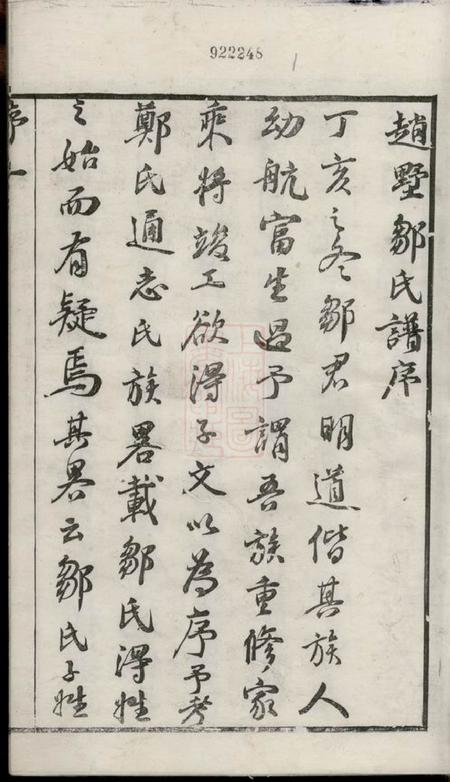 922248
1
趙墅鄒氏譜序
丁亥之冬鄒君明道偕其族人
幼航富生過予謂吾族重修家
乘將竣工欲得子文以為序予考
鄭氏通志氏族畧載鄒氏得姓
之始而有疑焉其畧云鄒氏子姓
序一